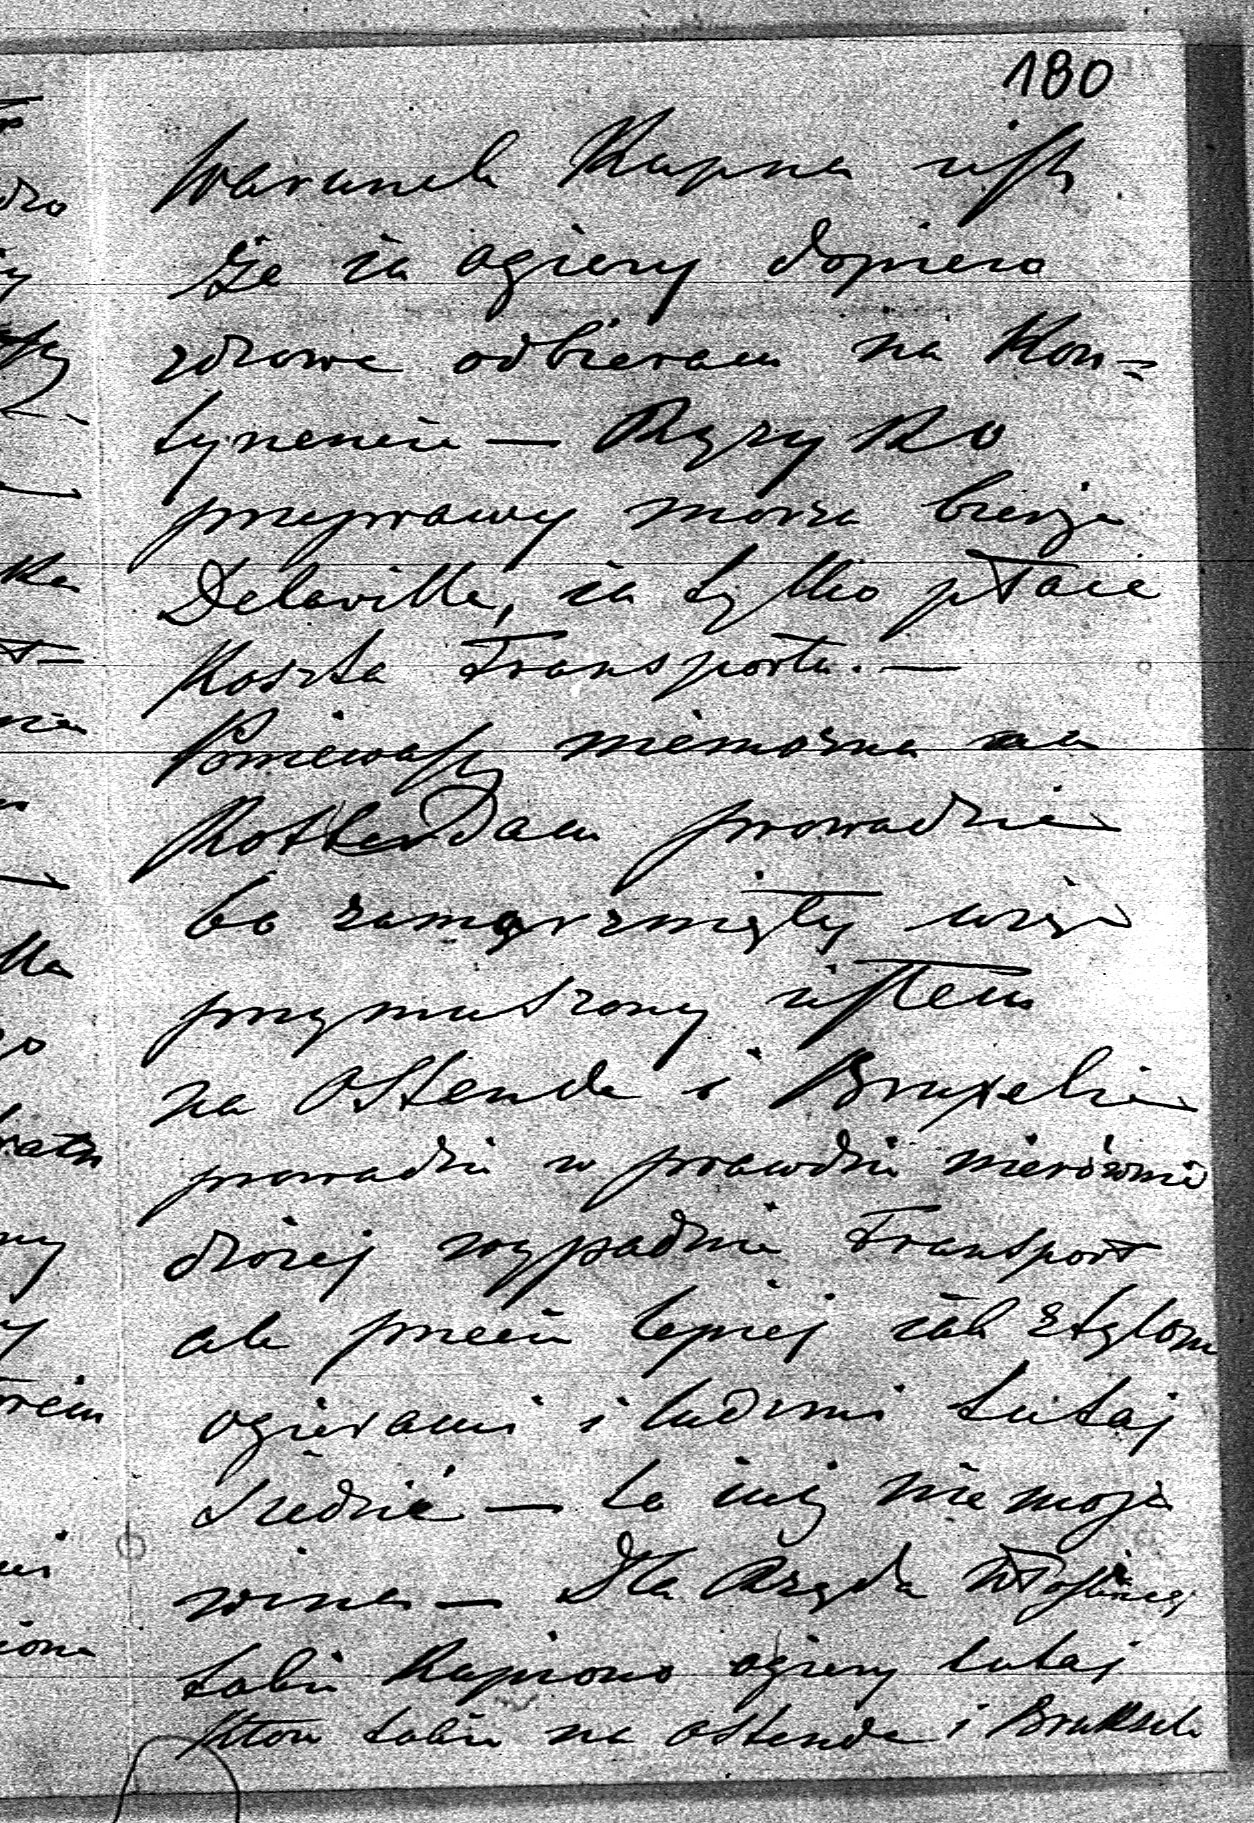 180
Warunek Kupna jest
że ia ogiery dopiero
zdrowe odbieram na Kon=
tynencie — Ryzyko
przeprawy morza bierze
Delaville, ia tylko płacę
Koszta transportu. —
Ponieważ niemożna na
Rotterdam prowadzić
bo zamarznięty więc
przymuszony jestem
na Ostende i Bruxelie
prowadzić w prawdzie nierównie
drożej wypadnie transport
ale przecie lepiej iak z tylom
ogierami i ludzmi tutaj
siedzić — to iuż nie moja
wina — Dla Rządu Włoskiej
także Kupiono ogiery tutaj
które także na Ostende i Bruksele